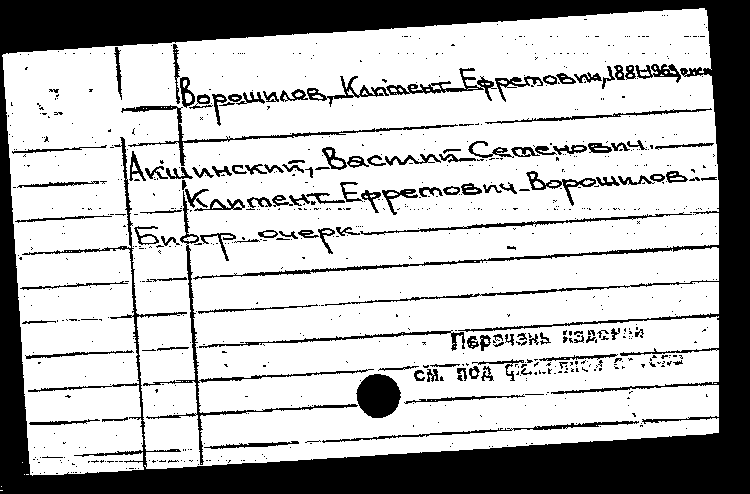 Ворошилов, Климент Ефремович, 1881-1969,
Акшинский, Василий Семенович.
Климент Ефремович Ворошилов:
Биогр. очерк.
Перечень изданий
см. под